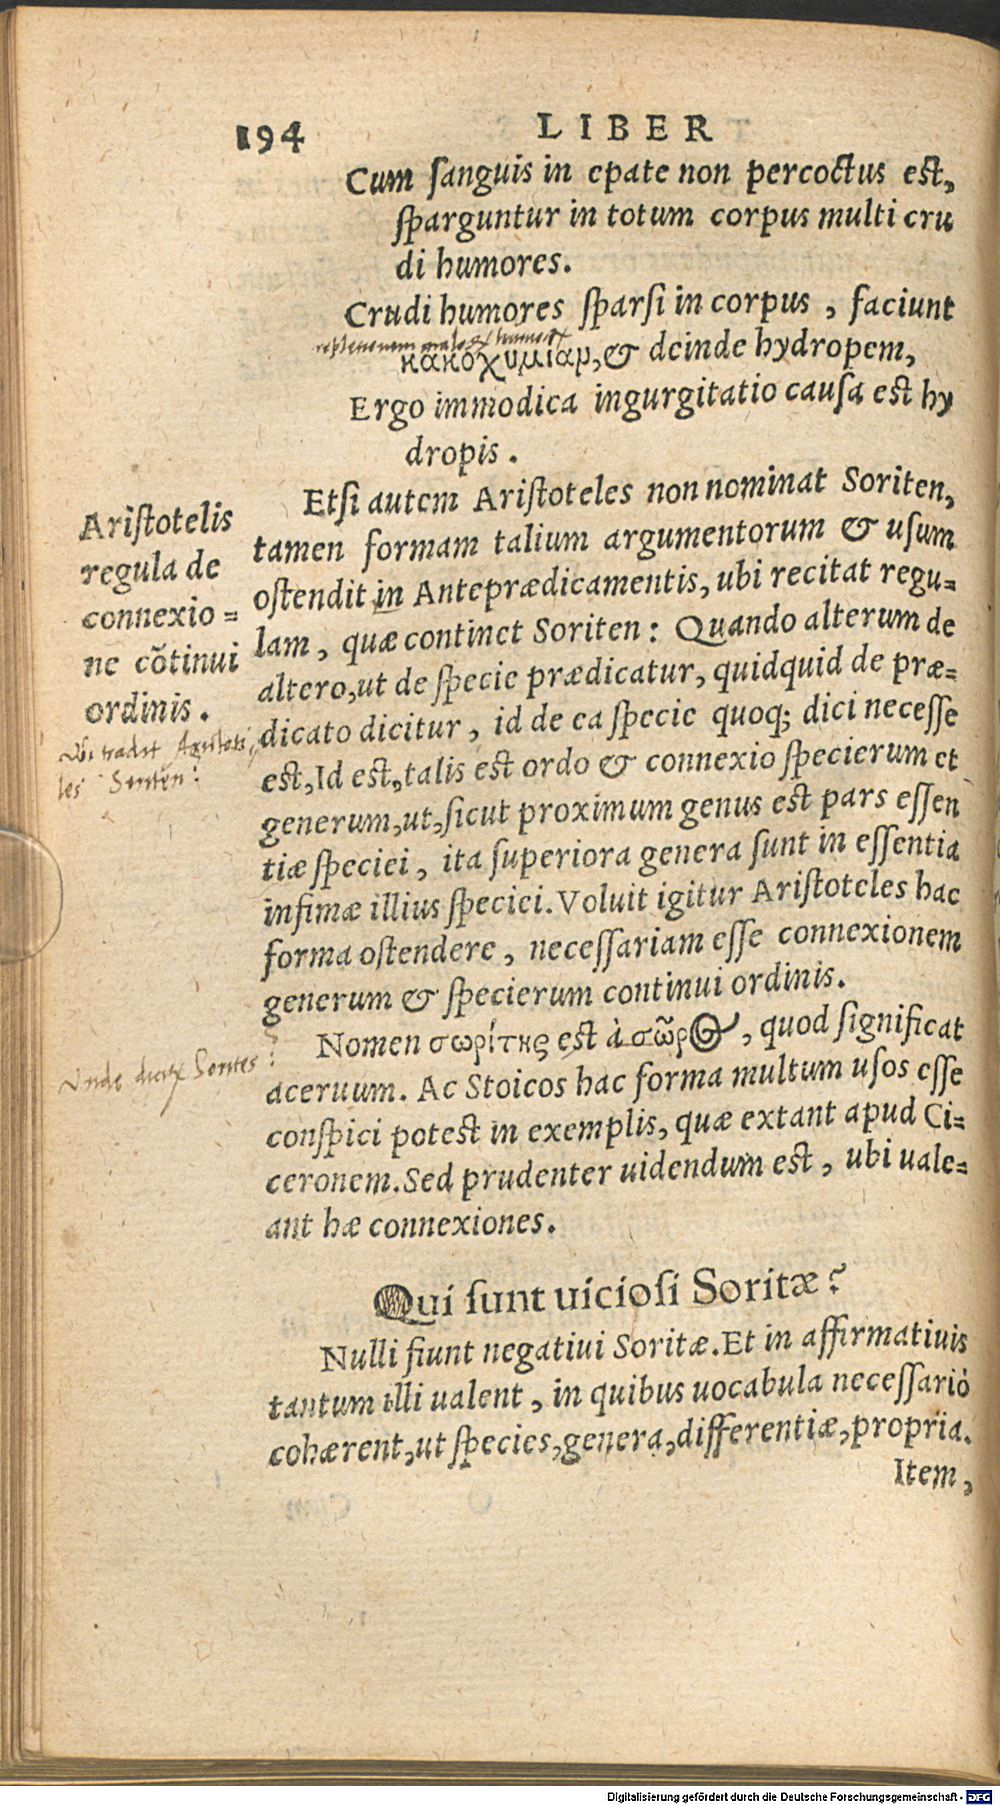 194
LIBER
Cum ſanguis in epate non percoctus est,
ſparguntur in totum corpus multi cru
di humores.
Crudi humores ſparſi in corpus, faciunt
κακοχυμίαμ, & deinde hydropem,
Ergo immodica ingurgitatio cauſa est hy
dropis.
Etſi autem Ariſtoteles non nominat Soriten,
tamen formam talium argumentorum & uſum
oſtendit in Anteprædicamentis, ubi recitat regu-
lam, quæ continet Soriten: Quando alterum de
altero, ut de ſpecie prædicatur, quidquid de præ-
dicato dicitur, id de ea ſpecie quoq; dici neceſſe
est, Id est, talis est ordo & connexio ſpecierum et
generum, ut, ſicut proximum genus est pars eſſen
tiæ ſpeciei, ita ſuperiora genera ſunt in eſſentia
infimæ illius ſpeciei. Voluit igitur Ariſtoteles hac
forma oſtendere, neceſſariam eſſe connexionem
generum & ſpecierum continui ordinis.
Nomen σωρίτης est à σῶρος, quod ſignificat
aceruum. Ac Stoicos hac forma multum uſos eſſe
conſpici potest in exemplis, quæ extant apud Ci-
ceronem. Sed prudenter uidendum est, ubi uale-
ant hæ connexiones.
Qui ſunt uicioſi Soritæ?
Nulli fiunt negatiui Soritæ. Et in affirmatiuis
tantum illi ualent, in quibus uocabula neceſſariò
cohærent, ut ſpecies, genera, differentiæ, propria.
Item,
Ariſtotelis
regula de
connexio-
ne cõtinui
ordinis.
Ubi tradit Aristote
les Soriten?
Unde dicitur Sorites?
Digitalisierung gefördert durch die Deutsche Forschungsgemeinschaft - DFG